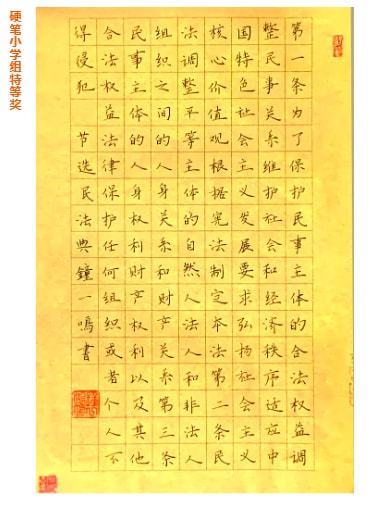 硬笔小学组特等奖
第一条为了保护民事主体的合法权益调
整民事关系维护社会和经济秩序适应中
国特色社会主义发展要求弘扬社会主义
核心价值观根据宪法制定本法第二条民
法调整平等主体的自然人法人和非法人
组织之间的人身关系和财产关系第三条
民事主体的人身权利财产权利以及其他
合法权益法律保护任何组织或者个人不
得侵犯 节选民法典鐘一鳴書